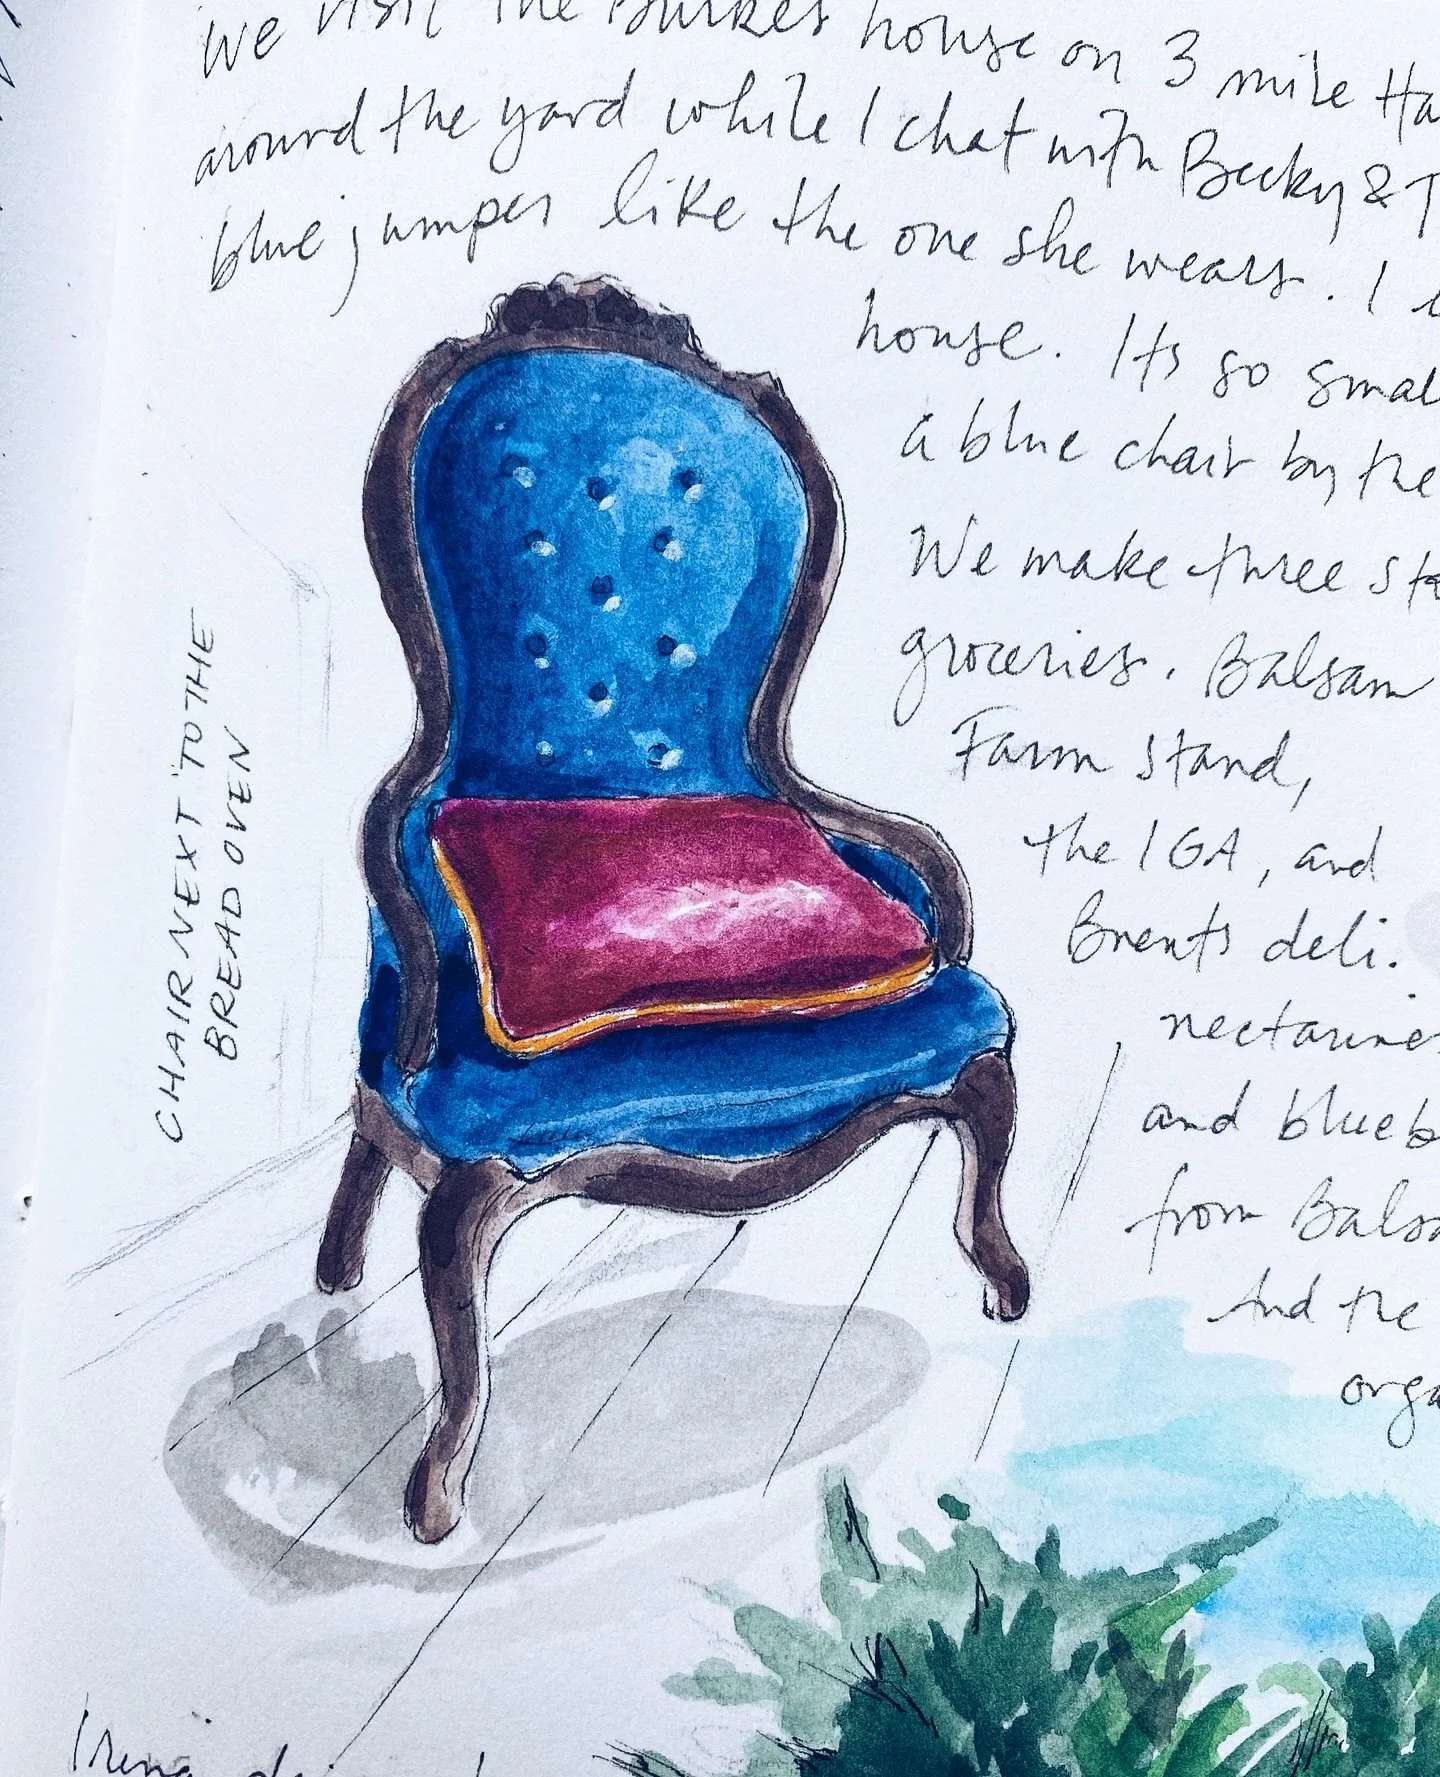 We visit the Burkes house on 3 mile Ha
around the yard while I chat with Becky & T
blue jumper like the one she wears. I
house. Its so smal
a blue chair by the
We make three st
groceries. Balsam
Farm Stand,
the IGA, and
Brents deli.
nectarines
and blueb
from Balsa
And the
orga
CHAIR NEXT TO THE
BREAD OVEN
Irena